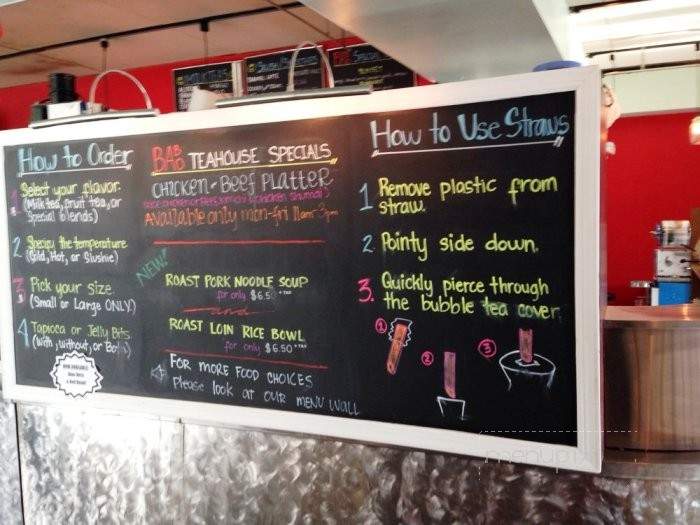 How to Order
1 Select your flavor.
(Milk tea, fruit tea, or
Special blends)
2 Specify the temperature
(Cold, Hot, or Slushie)
3 Pick your size.
(Small or Large ONLY)
4 Tapioca or Jelly Bits
(with, without, or Both)
TEAHOUSE SPECIALS
CHICKEN - BEEF PLATTER
AVAILABLE only mon-fri 11am-3pm
NEW!
ROAST PORK NOODLE SOUP
for only $6.50 +TAX
and
ROAST LOIN RICE BOWL
for only $6.50 +TAX
FOR MORE FOOD CHOICES
Please look at OUR MENU WALL
How to Use Straws
1 Remove plastic from
straw.
2. Pointy side down.
3. Quickly pierce through
the bubble tea cover.
1
2
3
menupix